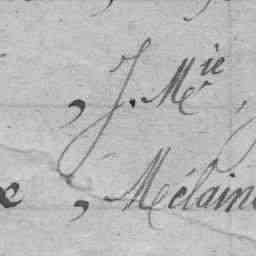 , J. M.ie ,
, Mélain